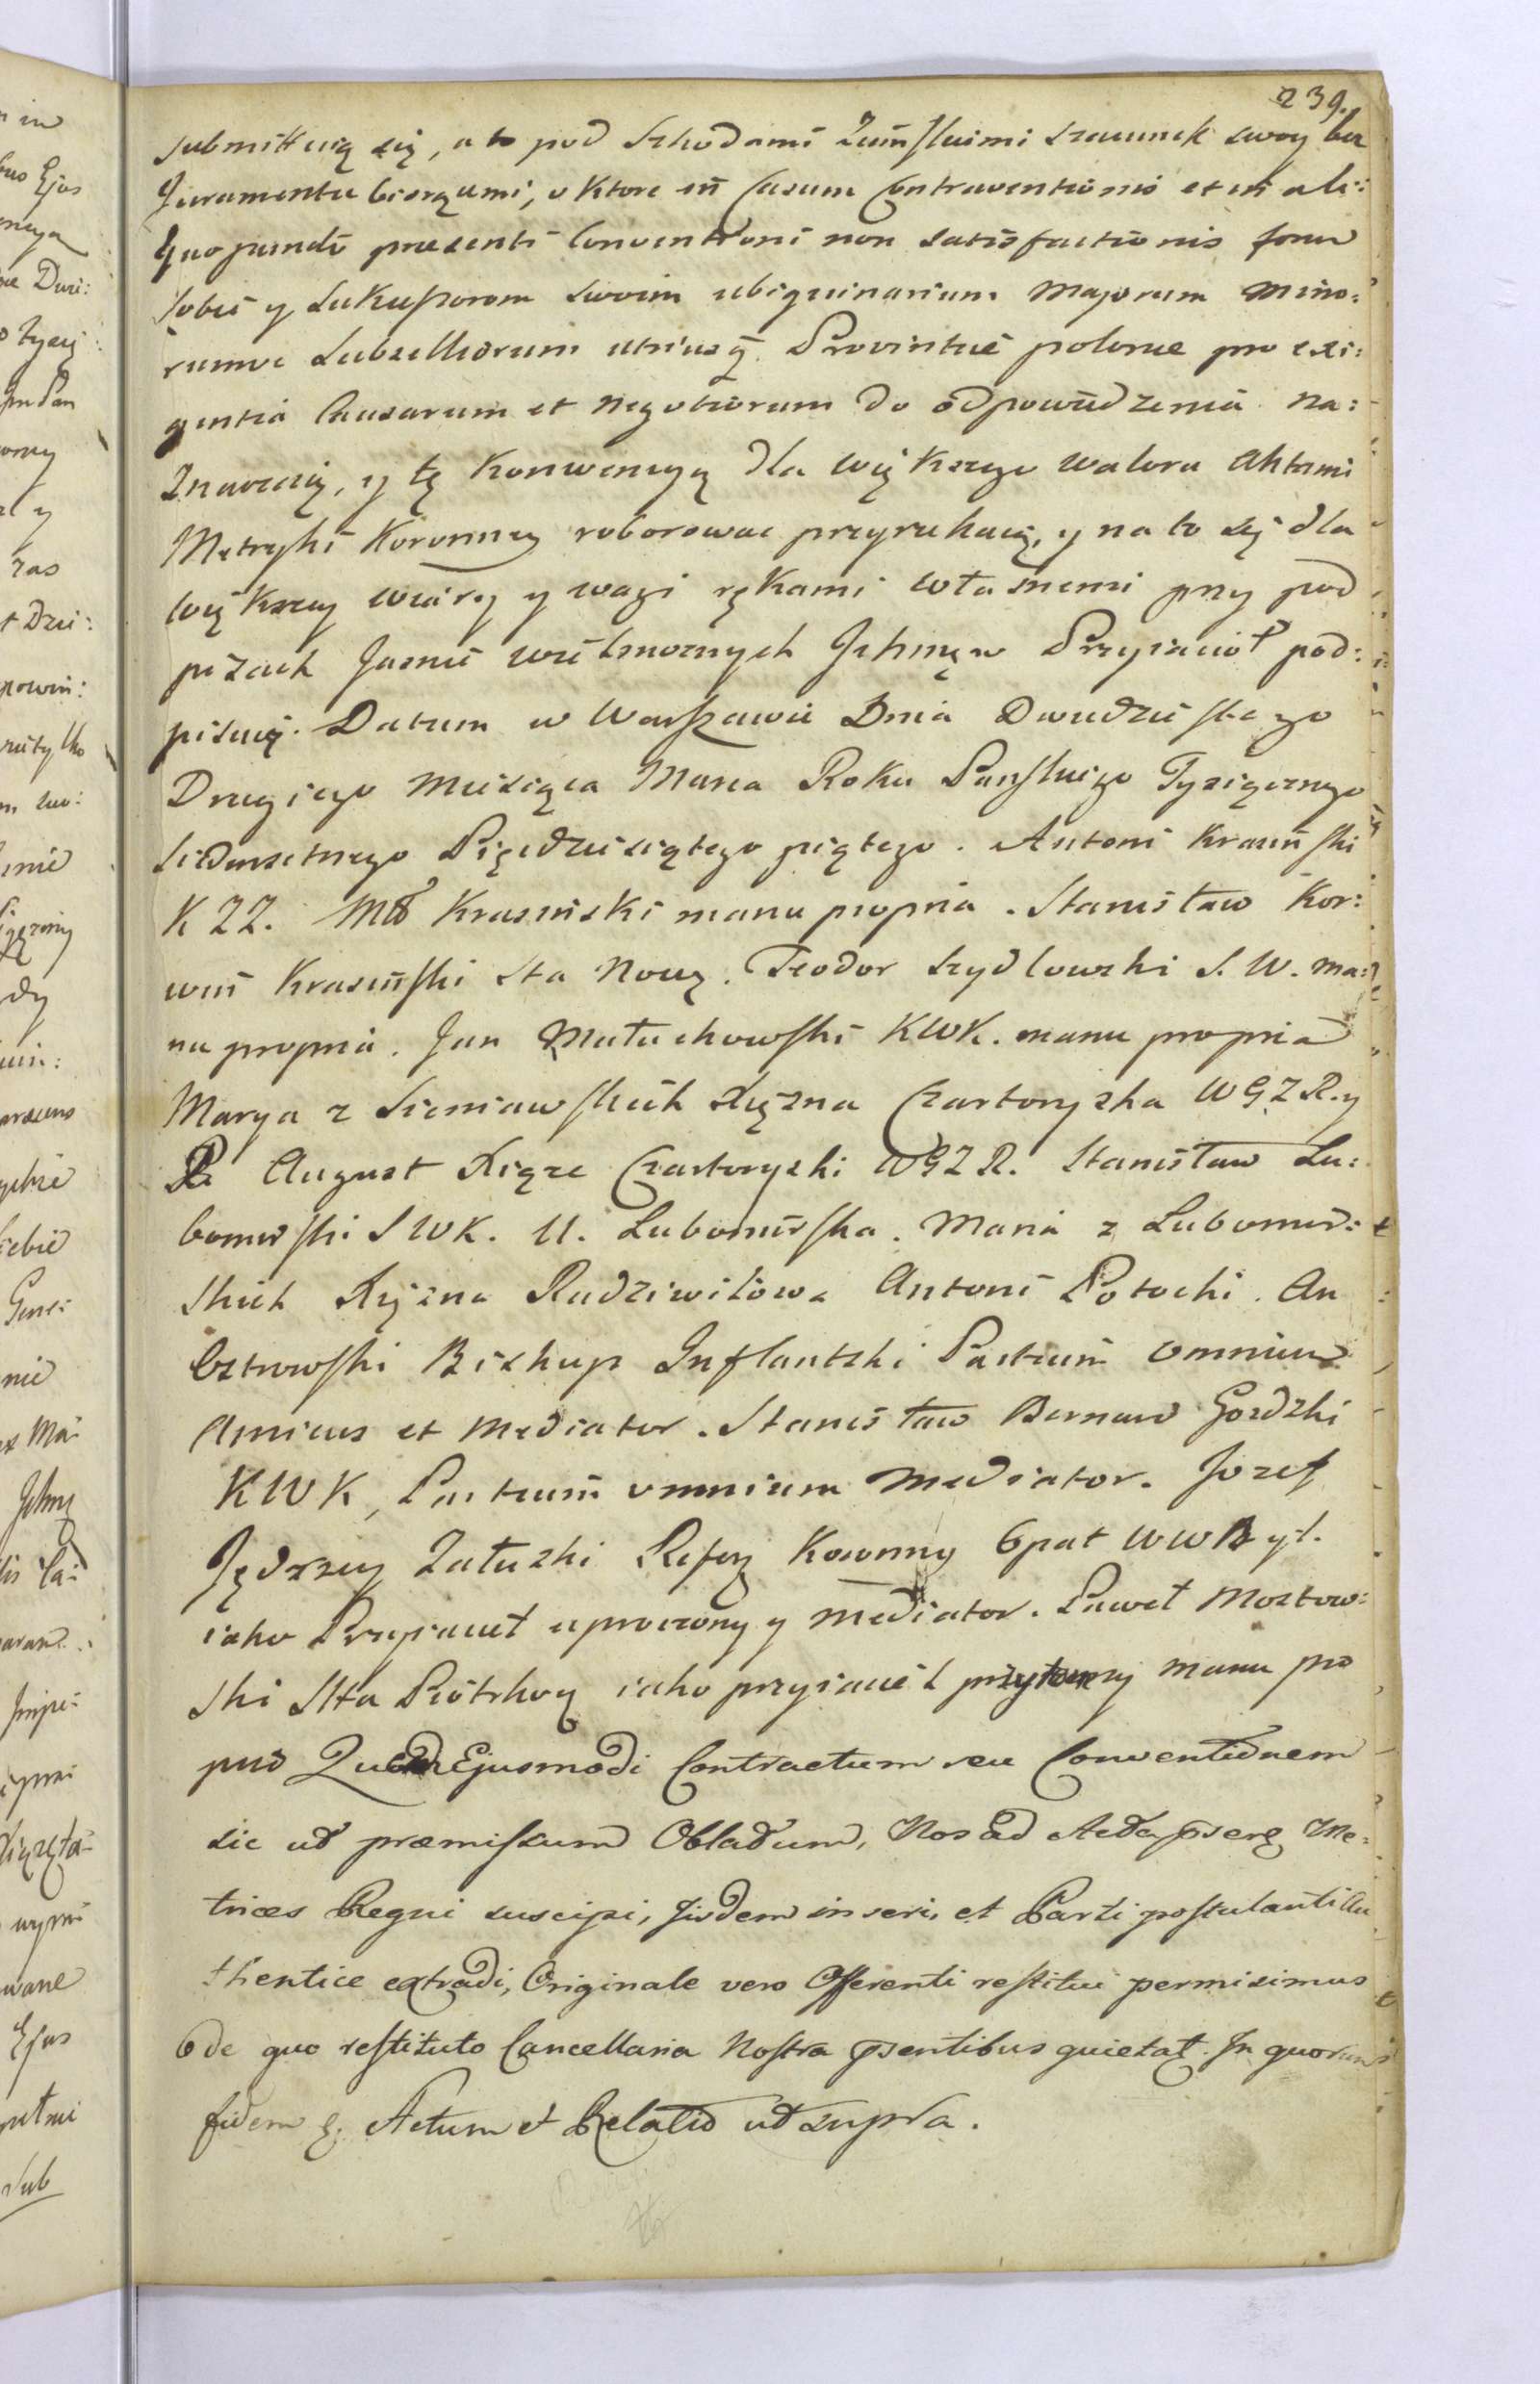 239.
submittuią się, a to pod Szkodami Ziemskiemi szacunek swoy bez
Juramentu biorącemi, o ktore in Casum Contraventionis et in ali:
quo puncto praesenti Conventioni non satisfactionis forum
sobie y Sukcessorom swoim ubiquinarium Majorum Mino:
rumve Subselliorum utriusq. Provintiae polonae pro exi:
gentia Causarum et Negotiorum do odpowiedzenia na:
znaczaią, y tę Konwencyą dla większego waloru Aktami
Metryki Koronney roborować przyrzekaią, y na to się dla
większey wiary y wagi rękami własnemi przy pod
pisach Jasnie wielmoznych Ichmcw Przyiaciół pod:
pisuią. Datum w Warszawie Dnia Dwudziestego
Drugiego Miesiąca Marca Roku Pańskiego Tysiącznego
Siedmsetnego Pięćdziesiątego piątego. Antoni Krasinski
K Z Z. Krasinski manu propria. Stanisław Kor:
win Krasinski Sta Nowy. Teodor Szydlowski S. W. ma:
nu propria. Jan Małachowski KWK. manu propria
Marya z Sieniawskich Xiężna Czartoryska WGZR. y
P. August Xiąże Czartoryski WGZR. Stanisław Lu:
bomirski SWK. U. Lubomirska. Maria z Lubomir:
skich Xiężna Radziwiłowa Antoni Potocki. An
Ostrowski Biskup Inflantski Partium omnium
Amicus et Mediator. Stanisław Bernard Gozdzki
KWK, Partium omnium Mediator. Jozef
Jędrzey Załuski Refer Koronny Opat WWB yt.
iako Przyiaciel uproszony y Mediator. Paweł Mostow:
ski Stta Piotrkow iako przyiaciel przytomny manu pro
pria Quem Ejusmodi Contractum seu Conventionem
sic ut praemissum Oblatum, Nos ad Acta pserē Me:
trices Regni suscipi, Jisdem inseri, et Parti postulanti Au
thentice extradi, Originale vero Offerenti restitui permisimus
de quo restituto Cancellaria Nostra psentibus quietat. In quorum
fidem &. Actum et Relatio ut supra.